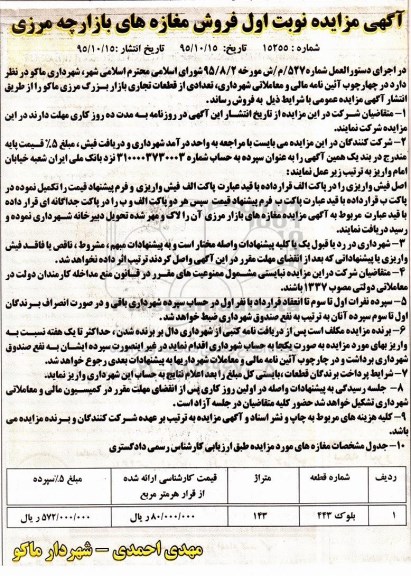 آگهی مزایده نوبت اول فروش مغازه های بازارچه مرزی
شماره : ۱۵۲۵۵ تاریخ: ۹۵/۱۰/۱۵ تاریخ انتشار :۹۵/۱۰/۱۵
در اجرای دستورالعمل شماره ۵۲۷/م/ش مورخه ۹۵/۸/۲ شورای اسلامی محترم اسلامی شهر، شهرداری ماکو در نظر
دارد در چهارچوب آئین نامه مالی و معاملاتی شهرداری، تعدادی از قطعات تجاری بازار بزرگ مرزی ماکو را از طریق
انتشار آگهی مزایده عمومی با شرایط ذیل به فروش رساند.
۱- متقاضیان شرکت در این مزایده از تاریخ انتشار این آگهی در روزنامه به مدت ده روز کاری مهلت دارند در این
مزایده شرکت نمایند.
۲- شرکت کنندگان در این مزایده می بایست با مراجعه به واحد درآمد شهرداری و دریافت فیش ، مبلغ ۵٪ قیمت پایه
مندرج در بند یک همین آگهی را به عنوان سپرده به حساب شماره ۳۱۰۰۰۰۳۷۳۰۰۰۳ نزد بانک ملی ایران شعبه خیابان
امام واریز به ترتیب زیر عمل نمایند:
اصل فیش واریزی را در پاکت الف قرارداده با قید عبارت پاکت الف فیش واریزی و فرم پیشنهاد قیمت را تکمیل نموده در
پاکت ب قرارداده با قید عبارت پاکت ب فرم پیشنهاد قیمت سپس هر دو پاکت الف و ب را در پاکت جداگانه ای قرار داده
با قید عبارت مربوط به آگهی مزایده مغازه های بازار مرزی آن را لاک و مهر شده تحویل دبیرخانه شهرداری نموده و
رسید دریافت نمایند.
۳- شهرداری در رد یا قبول یک یا کلیه پیشنهادات واصله مختار است و به پیشنهادات مبهم ، مشروط ، ناقص یا فاقد فیش
واریزی یا پیشنهاداتی که بعد از انقضای مهلت مقرر در این آگهی واصل گردند ترتیب اثر داده نخواهد شد.
۴- متقاضیان شرکت در این مزایده نبایستی مشمول ممنوعیت های مقرر در قانون منع مداخله کارمندان دولت در
معاملات دولتی مصوب ۱۳۳۷ باشند.
۵- سپرده نفرات اول تا سوم تا انعقاد قرارداد با نفر اول در حساب سپرده شهرداری باقی و در صورت انصراف برندگان
اول تا سوم سپرده آنان به ترتیب به نفع صندوق شهرداری ضبط خواهد شد.
۶- برنده مزایده مکلف است پس از دریافت نامه کتبی از شهرداری دال بر برنده شدن، حداکثر تا یک هفته نسبت به
واریز بهای مورد مزایده به صورت یکجا به حساب شهرداری اقدام نماید در غیر اینصورت سپرده ایشان به نفع صندوق
شهرداری برداشت و در چارچوب آئین نامه مالی و معاملات شهرداریها به پیشنهادات بعدی رجوع خواهد شد.
۷- شرایط پرداخت برندگان قطعات ،بایستی کل مبلغ را بعد اعلام نتایج به حساب این شهرداری واریز نماید.
۸- جلسه رسیدگی به پیشنهادات واصله در اولین روز کاری پس از انقضای مهلت مقرر در کمیسیون مالی و معاملاتی
شهرداری تشکیل خواهد شد حضور کلیه متقاضیان در جلسه آزاد است.
۹- کلیه هزینه های مربوط به چاپ و نشر اسناد و آگهی مزایده به ترتیب بر عهده شرکت کنندگان و برنده مزایده می
باشد.
۱۰- جدول مشخصات مغازه های مورد مزایده طبق ارزیابی کارشناس رسمی دادگستری
ردیف شماره قطعه متراژ قیمت کارشناسی ارائه شده از قرار هر متر مربع مبلغ ۵٪ سپرده
۱ بلوک ۴۴۳ ۱۴۳ ۸۰/۰۰۰/۰۰۰ ریال ۵۷۲/۰۰۰/۰۰۰ ریال
مهدی احمدی – شهردار ماکو